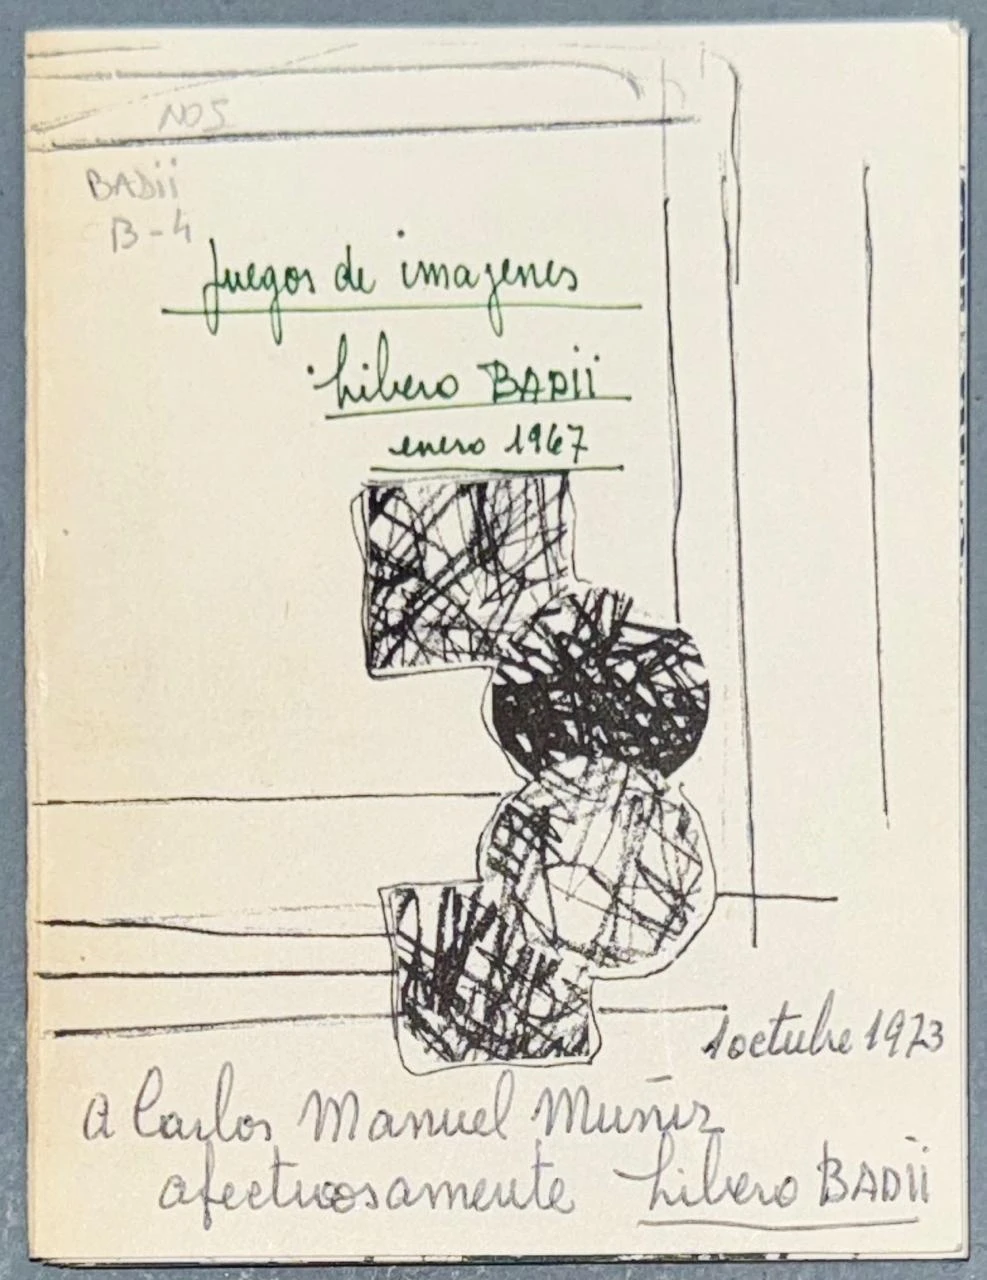 NOS
BADii
B-4
Juegos de imagenes
Libero BADII
enero 1967
1 octubre 1973
A Carlos Manuel Muñiz
afectuosamente Libero BADII